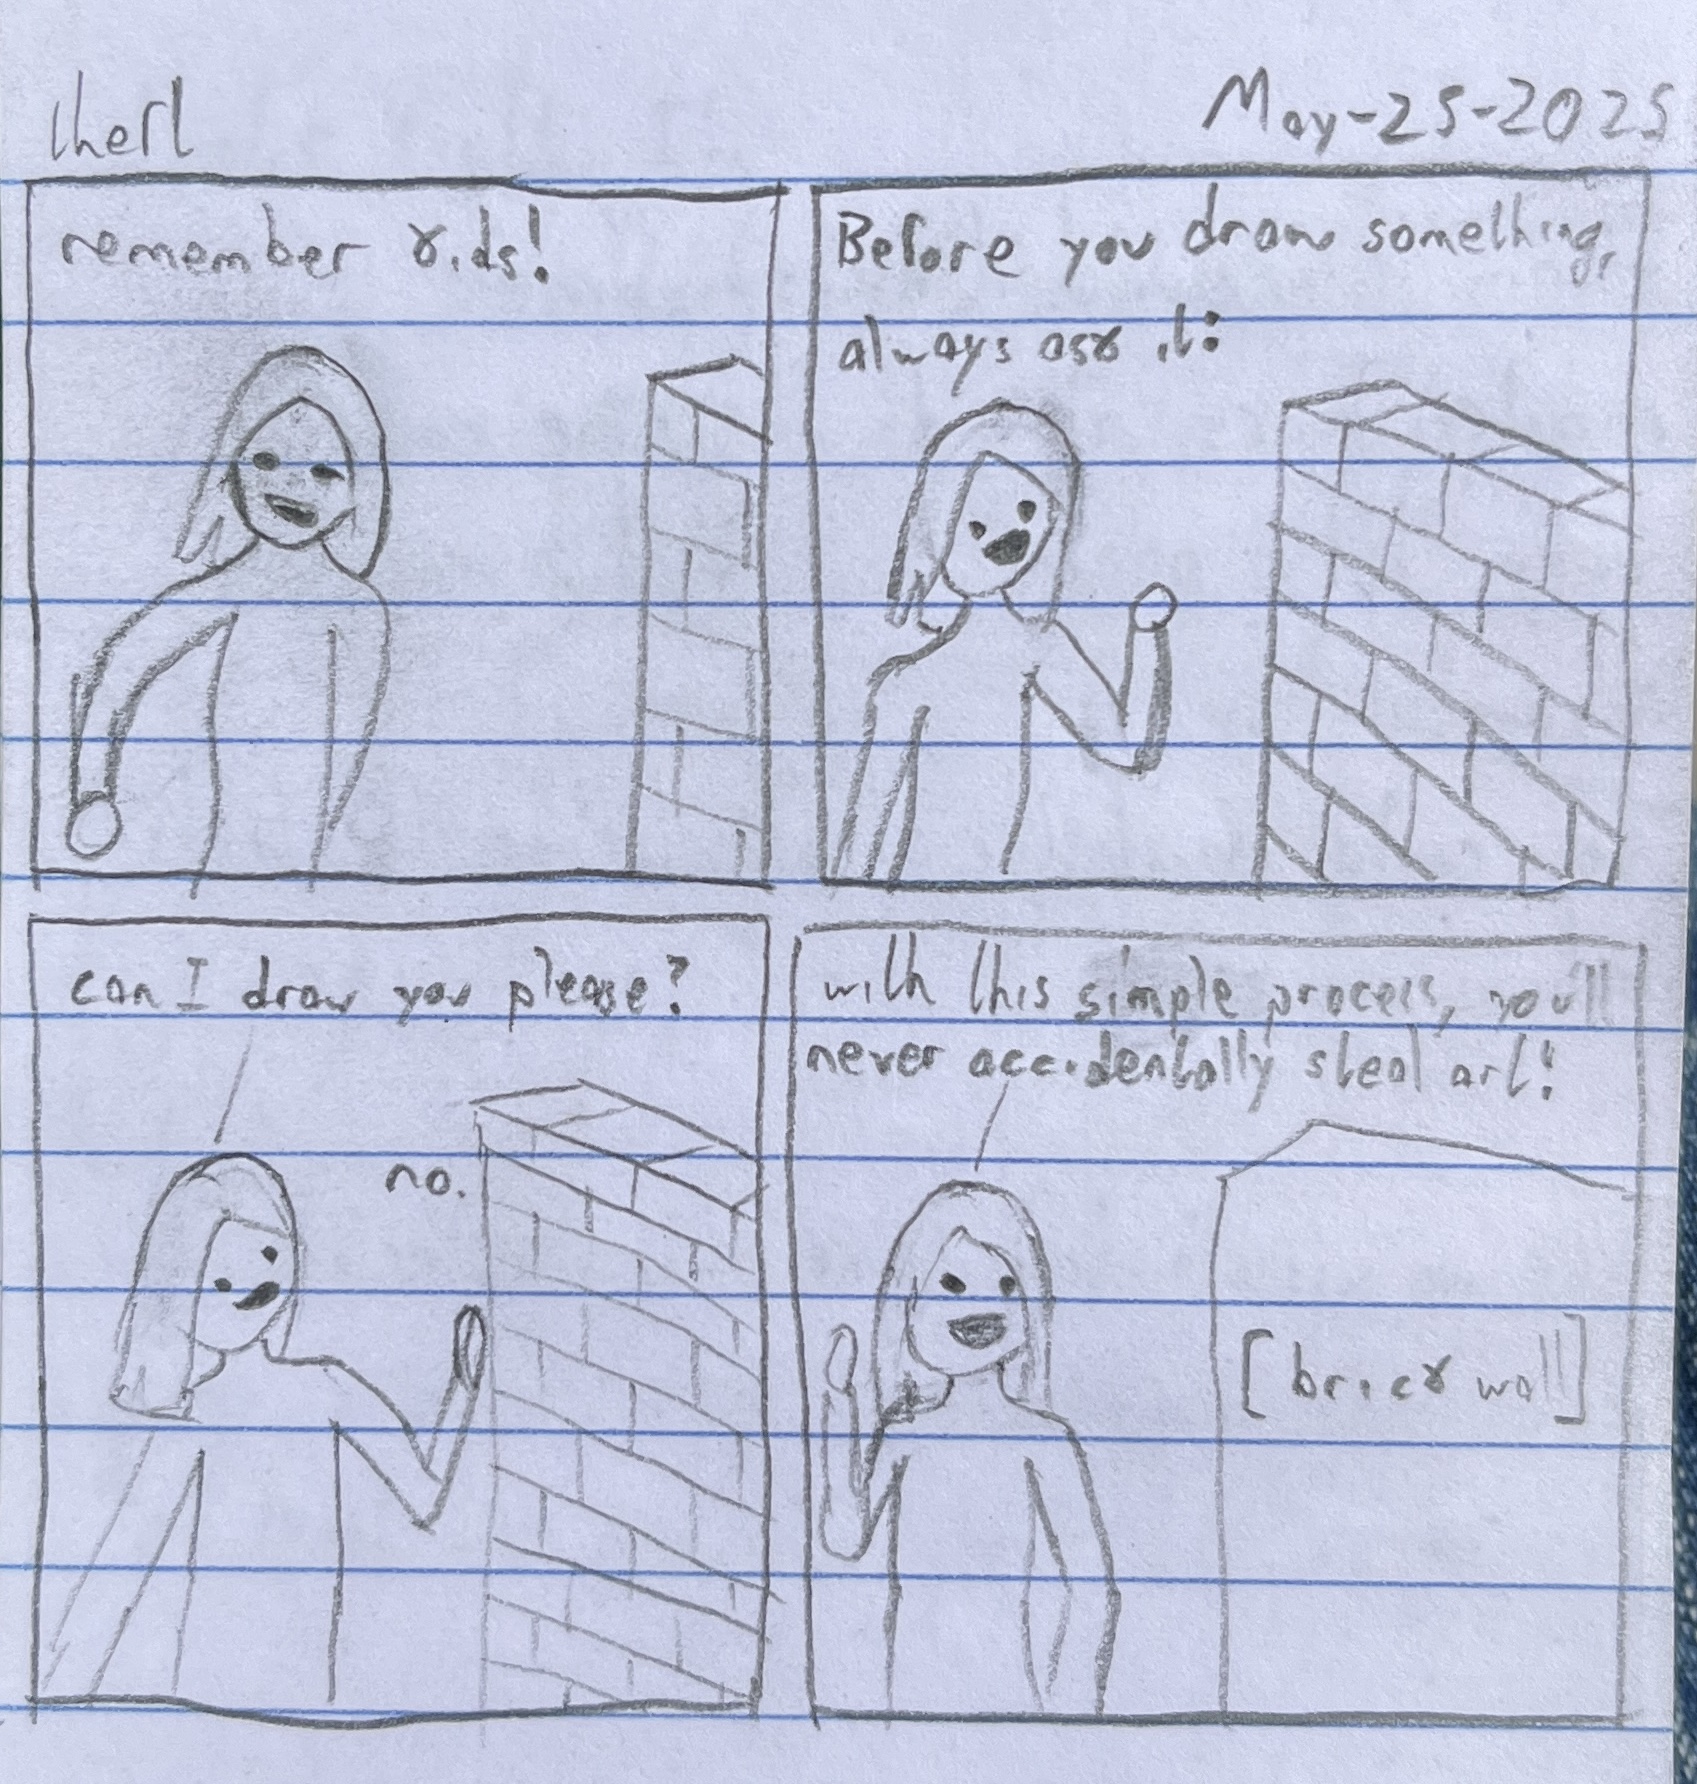 lherl
May-25-2025
remember kids!
Before you draw something,
always ask it:
can I draw you please?
no.
with this simple process, you'll
never accidentally steal art!
[brick wall]